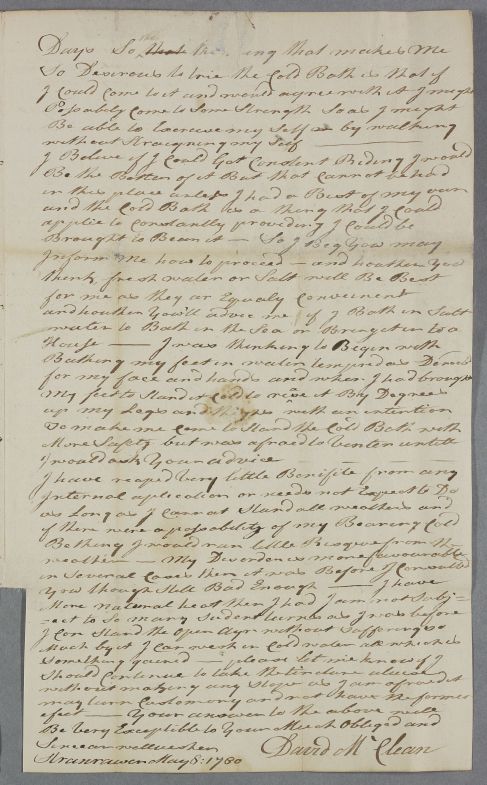 Days So the thing that makes Me
So Desirous to trie the Cold Bath is that if
I could Come to it and would agree with it I might
Possably Come to Some Strength So as I might
Be able to Exercise my Self by walking
without Straigning my Self
I Beleive if I Could Get Constent Riding I would
Be the Better of it But that Cannot be had
in this place unless I had a Beast of my own
and the Cold Bath is a thing that I Could
applie to Constantly providing I Could be
Brought to Bear it — So I Beg You may
Inform Me how to proceed — and whether You
think fresh water or Salt will Be Best
for me as they ar Equaly Conveinent
and whether You'll advise me if I Bath in Salt
water to Bath in the Sea or Bring it in to a
House — I was thinking to Begin with
Bathing my feet in water tempred as
for my face and hands and when I had brought
my feet to Stand it Cold to rise it By Degrees
up my Legs and thighs with an intention
to make me Com to Stand the Cold Bath with
More Safety but was afraed to Venter untill
I would ask Your advice
I have reaped very little Benifite from any
Internal application or needs not Expect to Do
as Long as I Cannot Stand all weathers and
if there were a possability of my Bearing Cold
Bathing I would run little Risque from the
weather — My Disorder is more favourable
in Several Cases then it was Before I Consulted
You though Still Bad Enough — I have
More natural heat then I had I am not Subj=
=ect to So many Suden turns as I was before
I Can Stand the Open Ayr without Suffering So
Much by it I Can work in Cold water all which is
Something gained — please let me know if I
Should Continue to take the tincture
without making any Stope as I am afraed it
may turn Customery and not have the former
efect — Your answer to the above will
Be Very Exceptible to Your Much Obliged and
Sincear wellwisher
David Mc Clean
Stranrawer May 8: 1780